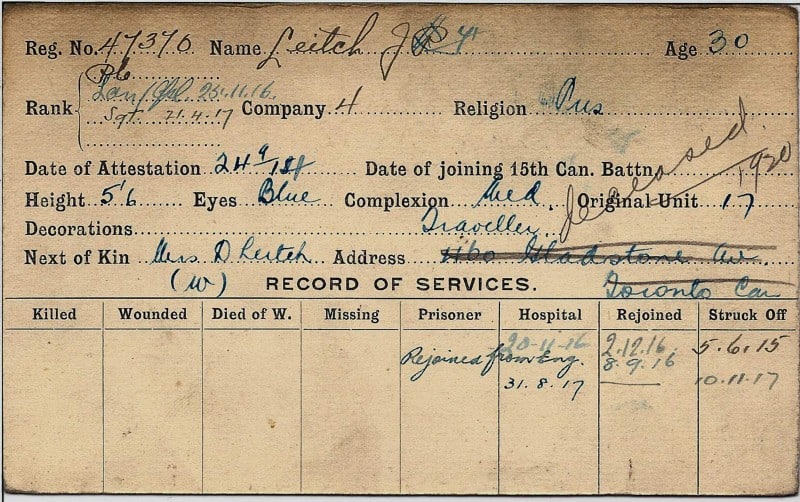 Reg. No. 47370 Name Leitch J Age 30
Pte
Rank Lan/Cpl. 25.11.16 Company 4 Religion Pres
Sgt 21.4.17
deceased 1920
Date of Attestation 24 9 Date of joining 15th Can. Battn.
Height 5'6 Eyes Blue Complexion Med. Original Unit 17
Decorations Traveller
Next of Kin Mrs D Leitch Address Gladstone Av.
(W) RECORD OF SERVICES. Toronto Can
Killed Wounded Died of W. Missing Prisoner Hospital Rejoined Struck Off
20-11-16 2.12.16 5.6.15
Rejoined from Eng. 8.9.16
31.8.17 10.11.17